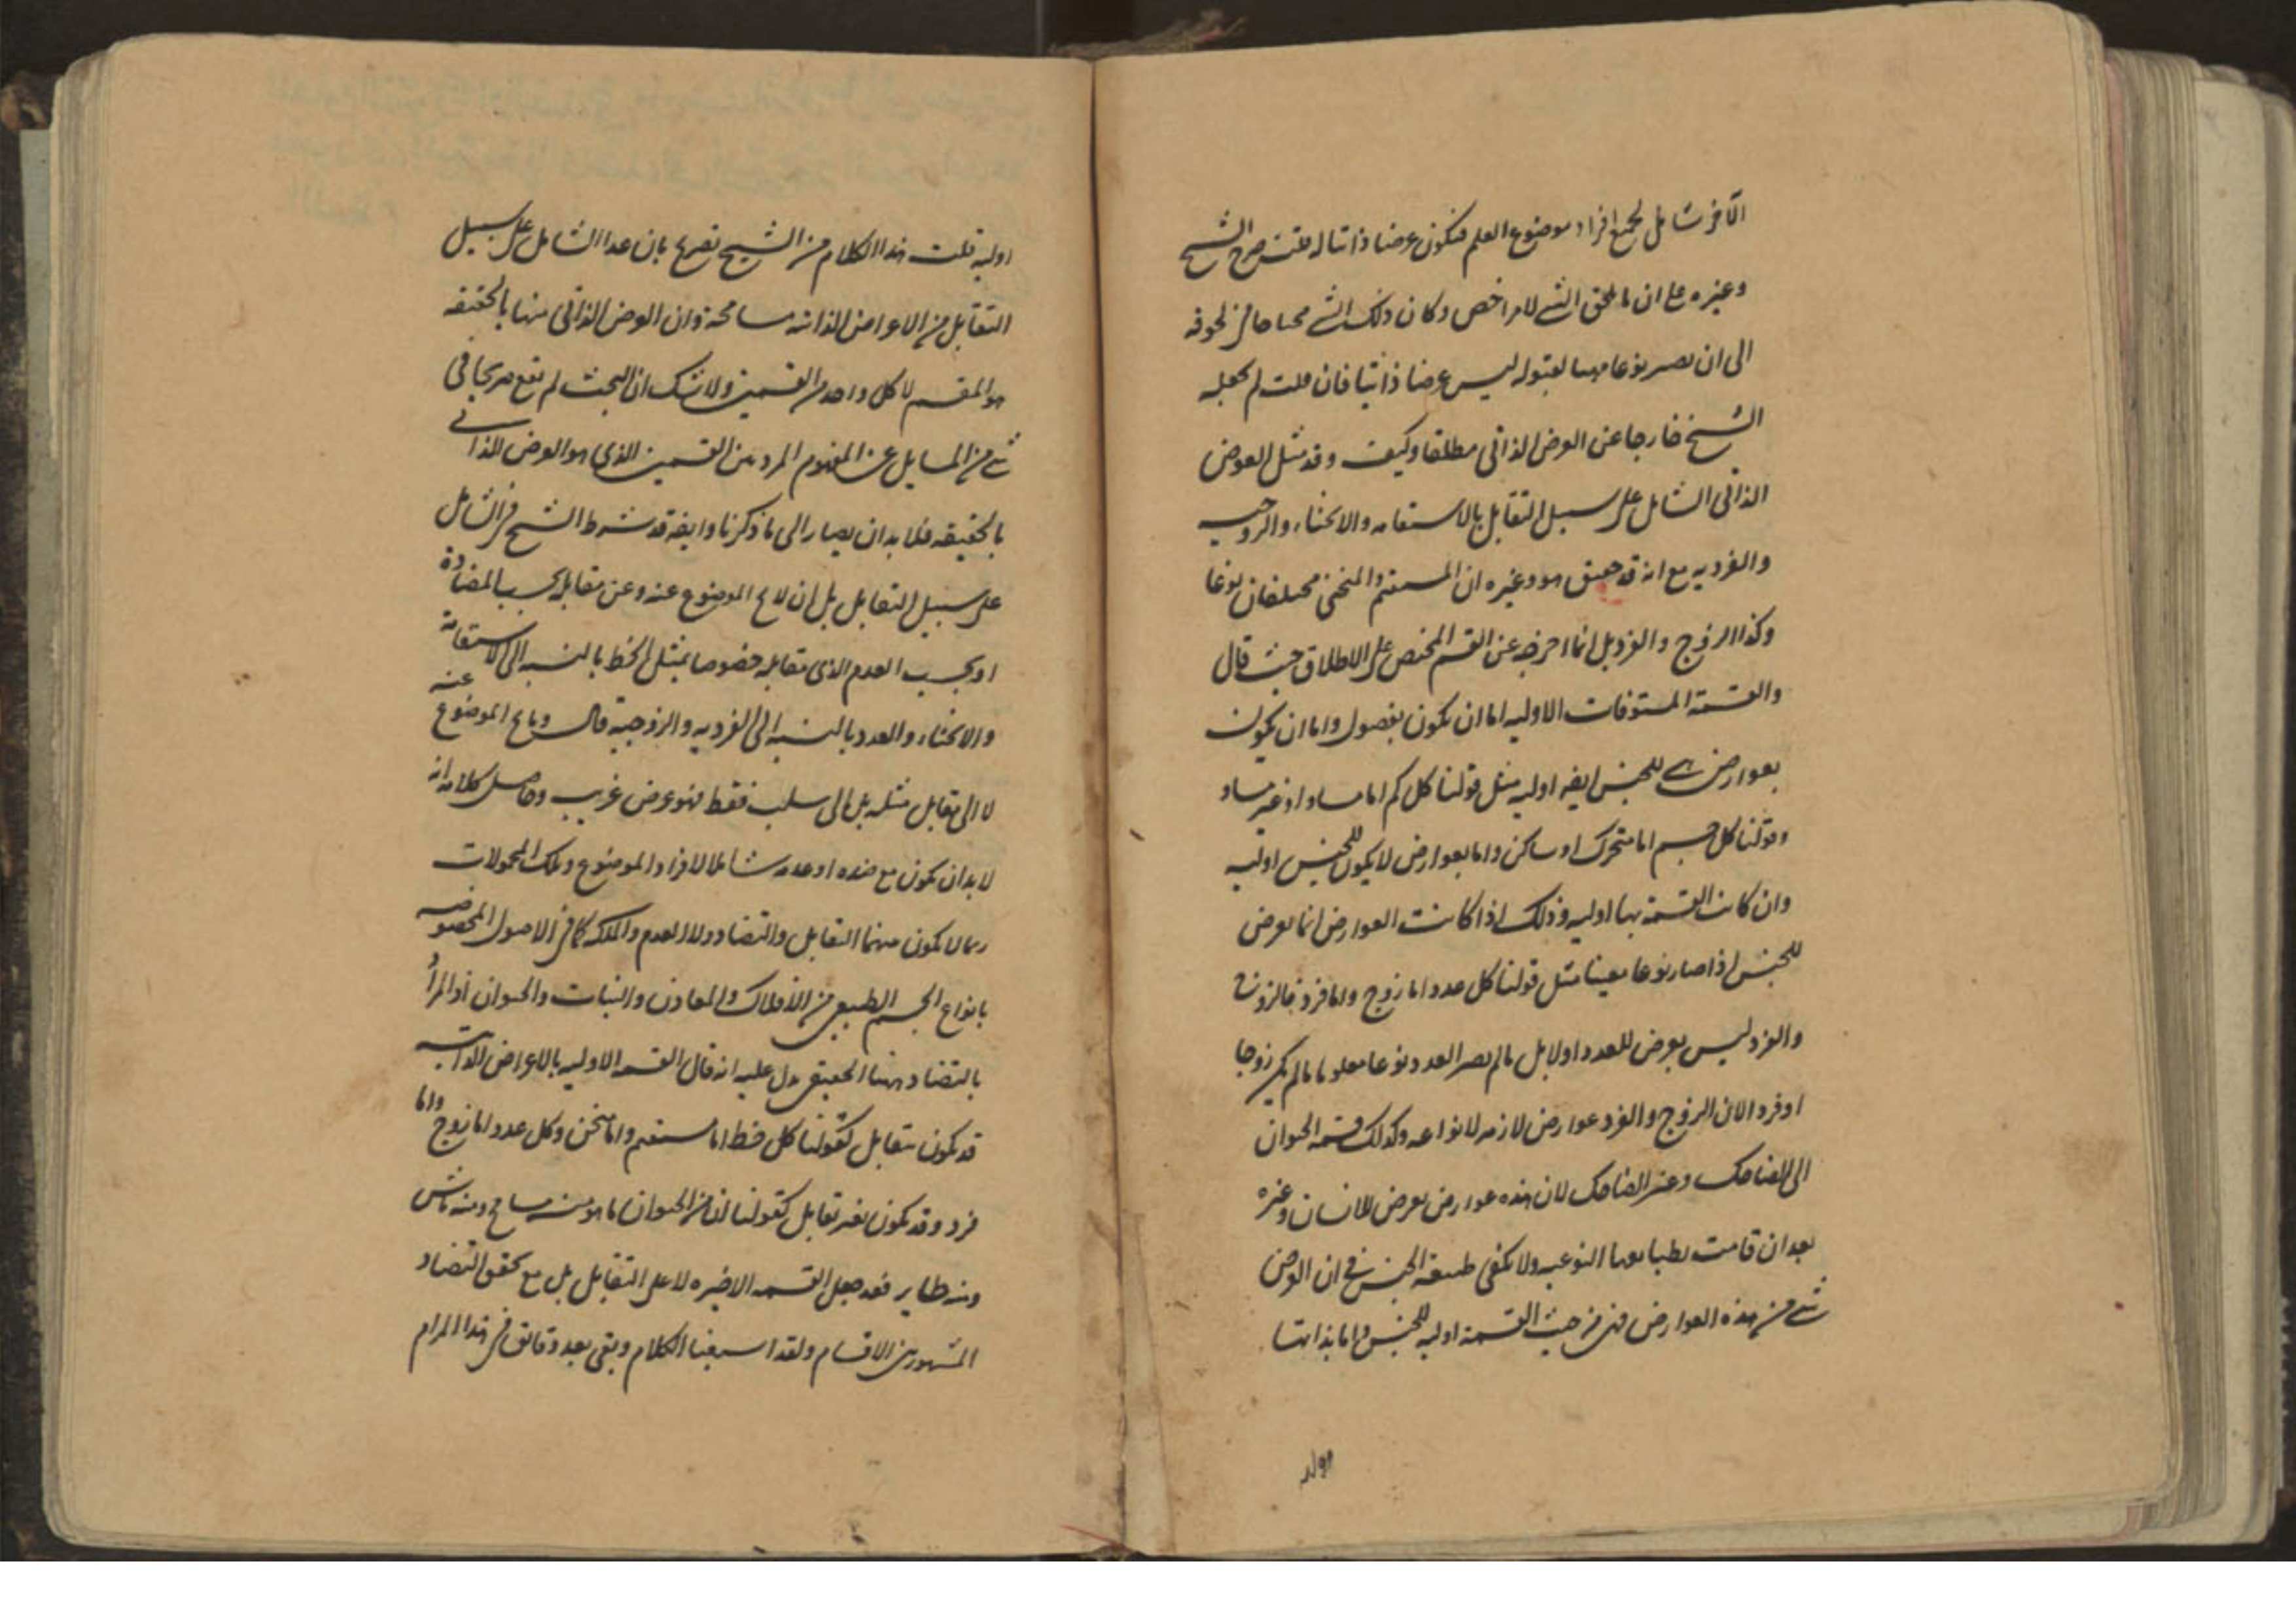 الآخر شامل لجميع افراد موضوع العلم فيكون عرضا ذاتيا له قلت صرح الشيخ
وغيره على ان ما يلحق الشي لامر اخص وكان ذلك الشي محتاجا في لحوقه
الى ان يصير نوعا مهيئا لقبوله ليس عرضا ذاتيا فان قلت لم يجعله
الشيخ خارجا عن العرض الذاتي مطلقا وكيف وقد مثل العرض
الذاتي الشامل على سبيل التقابل بالاستقامه والانحناء والزوجيه
والفرديه مع انه قد حقق هو وغيره ان المستقيم والمنحني مختلفان نوعا
وكذا الزوج والفرد بل انما اخرجه عن القسم المختص على الاطلاق حيث قال
والقسمة المستوفات الاوليه اما ان يكون بفصول واما ان يكون
بعوارض هي للجنس ايضه اوليه مثل قولنا كل كم اما مساو او غير مساو
وقولنا كل جسم اما متحرك او ساكن واما بعوارض لا يكون للجنس اوليه
وان كانت القسمة بها اوليه وذلك اذا كانت العوارض انما يعرض
للجنس اذا صار نوعا معينا مثل قولنا كل عدد اما زوج واما فرد فالزوج
والفرد ليس يعرض للعدد اولا بل ما لم يصر العدد نوعا معلوما لم يكن زوجا
او فردا لان الزوج والفرد عوارض لازمه لانواعه وكذلك قسمه الحيوان
الى الضاحك وغير الضاحك لان هذه عوارض يعرض للانسان وغيره
بعد ان قامت بطبايعها النوعيه ولا يكفي طبيعة الجنس في ان العرض
شي من هذه العوارض فهي من حيث القسمة اوليه للجنس واما بذاتها
اوليه قلت هذا الكلام من الشيخ تصريح بان عد الشامل على سبيل
التقابل من الاعراض الذاتيه مسامحة وان العرض الذاتي منها بالحقيقه
هو المقسم لا كل واحد من القسمين ولا شك ان البحث لم يقع صريحا في
شي من المسايل عن المفهوم المردد بين القسمين الذي هو العرض الذاتي
بالحقيقه فلا بد ان يصار الى ما ذكرنا وايضه قد شرط الشيخ في الشامل
على سبيل التقابل بل ان لا يخ الموضوع عنه وعن مقابله بحسب المضادة
او بحسب العدم الذي يقابله خصوصا بمثل الخط بالنسبه الى الاستقامة
والانحناء والعدد بالنسبه الى الفرديه والزوجية قال وما يخ الموضوع عنه
لا الى مقابل مثله بل الى سلب فقط فهو عرض غريب وحاصل كلامه انه
لا بد ان يكون مع ضده او عدمه شاملا لافراد الموضوع وتلك المحمولات
ربما لا يكون بينهما التقابل والتضاد ولا العدم والملكه كما في الاصول المخصوصه
بانواع الجسم الطبيعي من الافلاك والمعادن والنبات والحيوان اذ المراد
بالتضاد ههنا الحقيقي يدل عليه انه قال القسمه الاوليه بالاعراض الذاتيه
قد يكون بتقابل كقولنا كل خط اما مستقيم واما منحن وكل عدد اما زوج واما
فرد وقد يكون بغير تقابل كقولنا ان من الحيوان ما هو منه سابح ومنه ماش
ومنه طاير فقد جعل القسمه الاخيره لا على التقابل بل مع تحقق التضاد
المشهور بين الاقسام ولقد اسبغنا الكلام وبقي بعد دقايق في هذا المرام